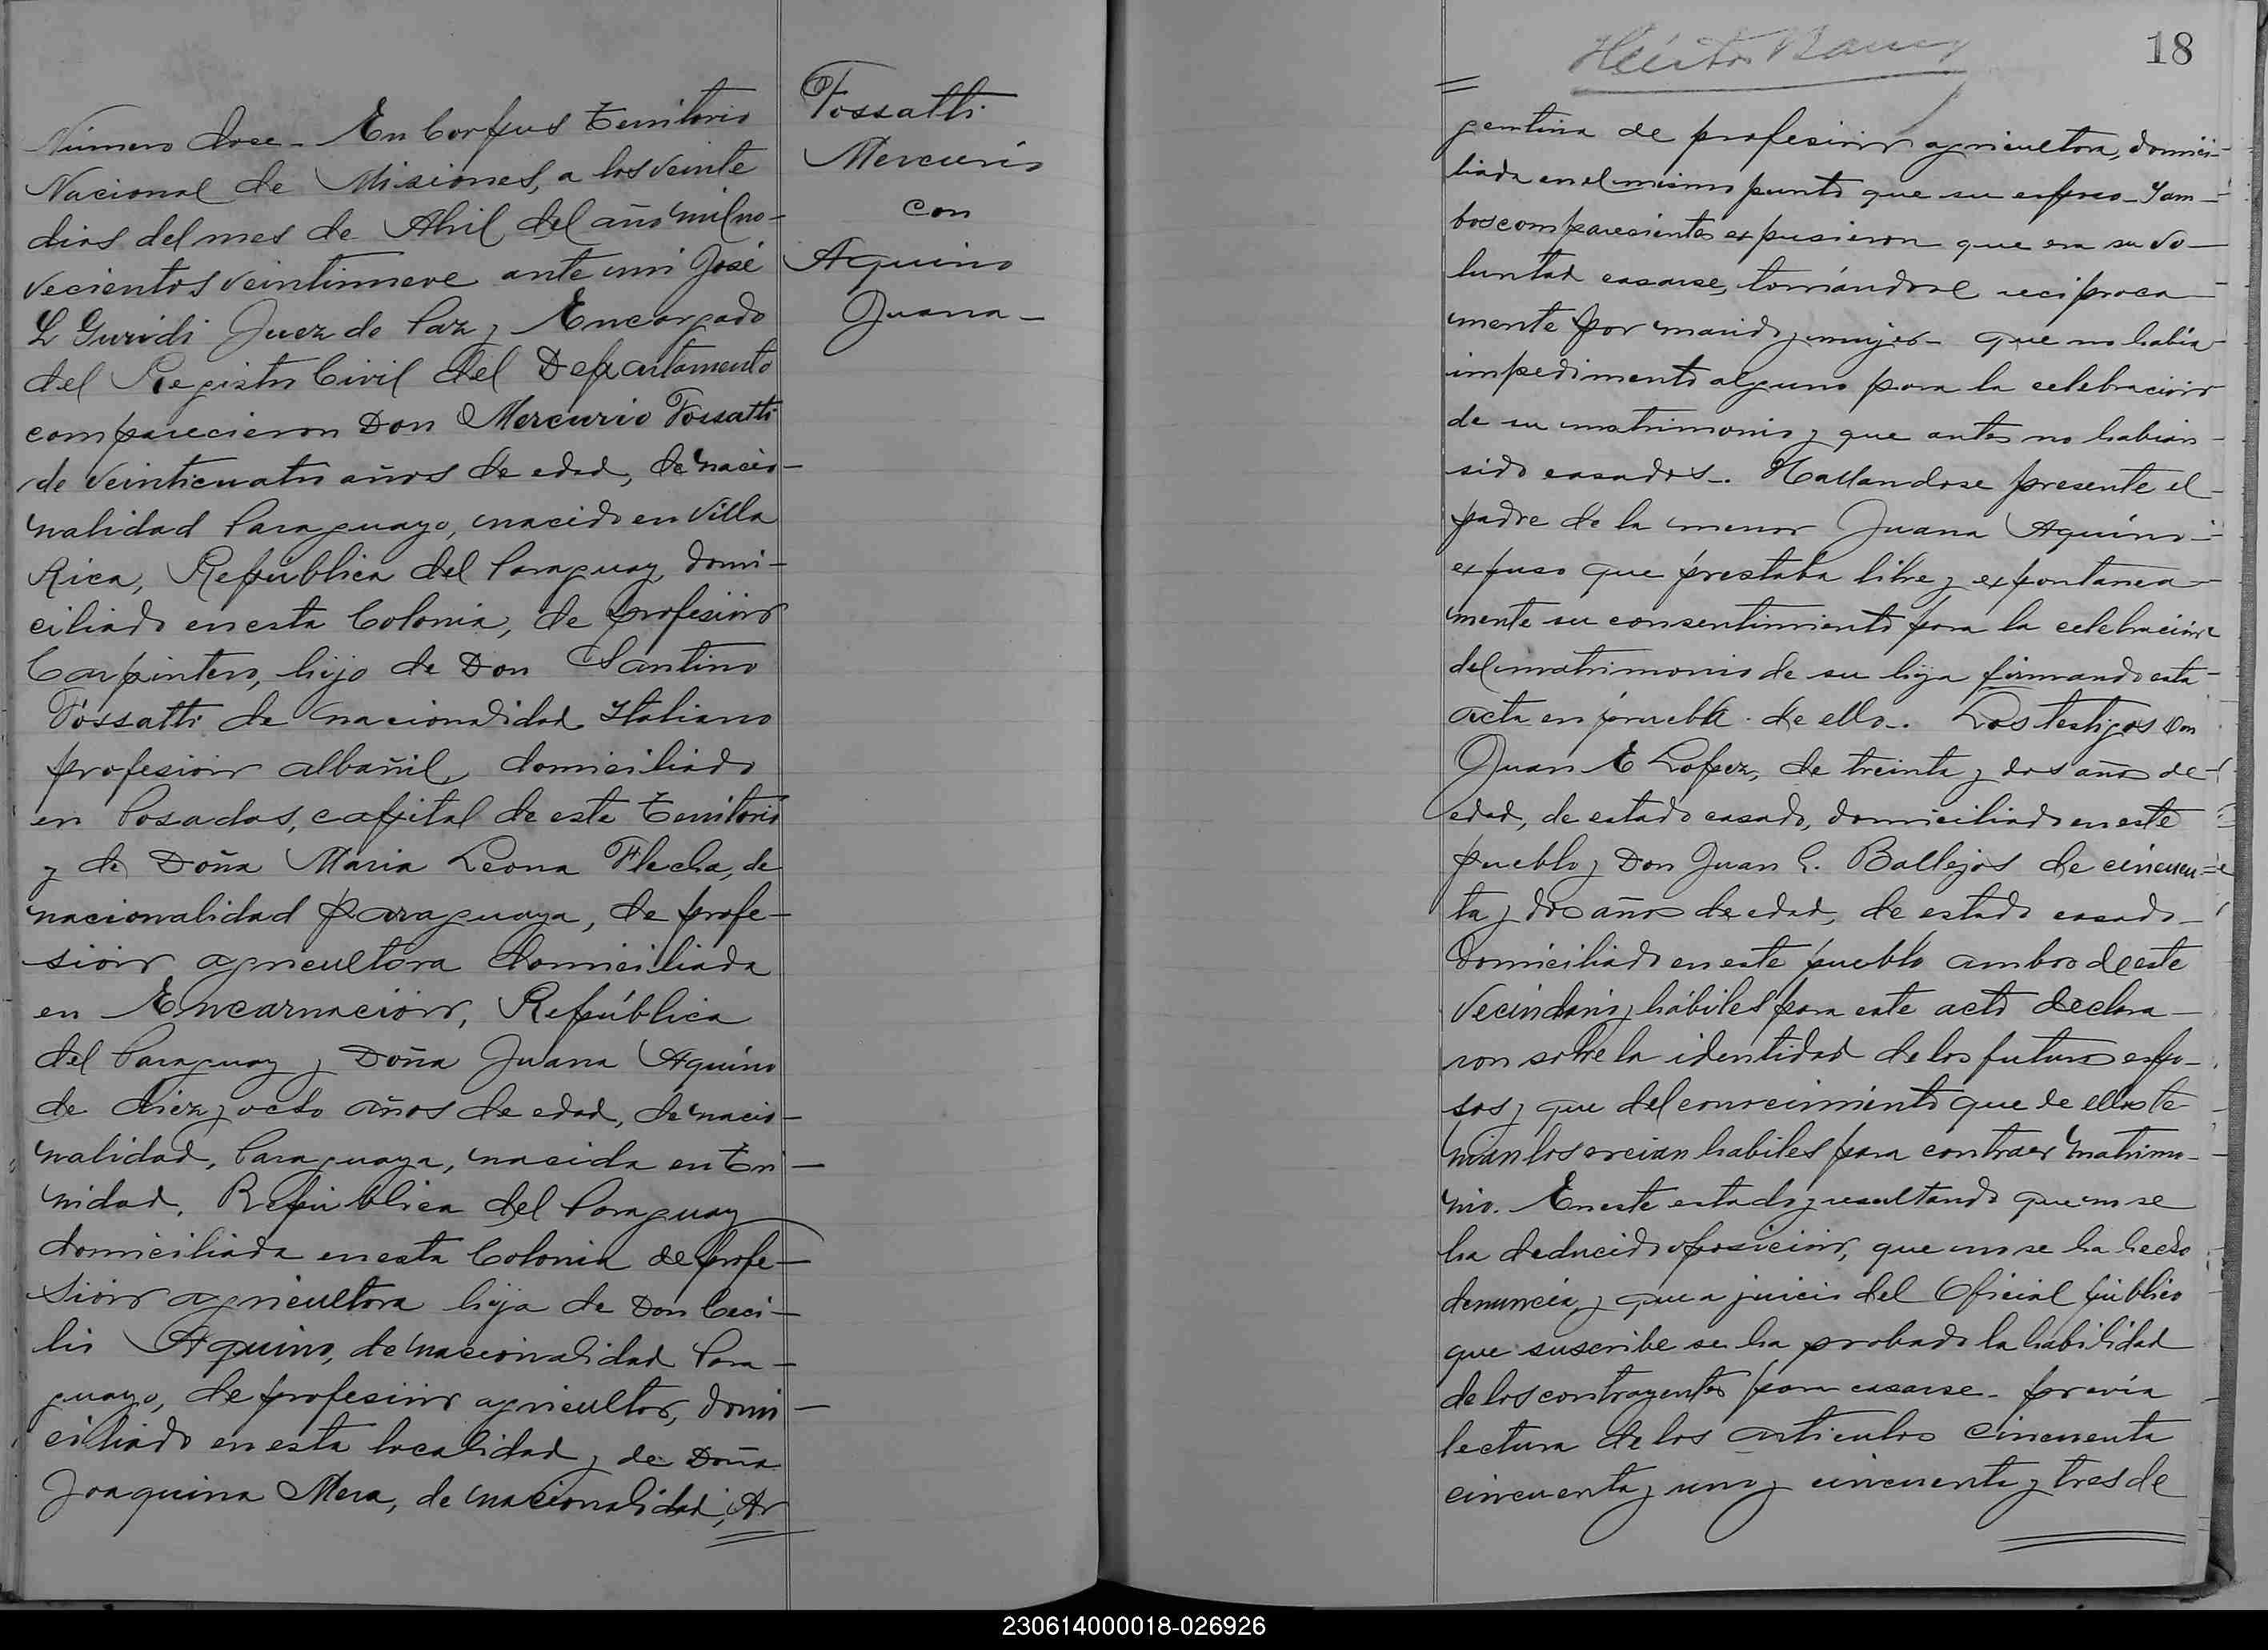 Número doce - En Corpus Territorio
Nacional de Misiones, a los veinte
dias del mes de Abril del año mil no-
vecientos veintinueve ante mi José
L Guridi Juez de Paz y Encargado
del Registro Civil del Departamento
comparecieron Don Mercurio Fossatti
de veinticuatro años de edad, de nacio-
nalidad Paraguayo, nacido en Villa
Rica, República del Paraguay, domi-
ciliado en esta Colonia, de profesión
Carpintero, hijo de Don Santino
Fossatti de nacionalidad Italiano
profesion albañil, domiciliado
en Posadas, capital de este Territorio
y de Doña Maria Leona Flecha, de
nacionalidad paraguaya, de profe-
sión agricultora domiciliada
en Encarnación, República
del Paraguay y Doña Juana Aquino
de diez y ocho años de edad, de nacio-
nalidad, Paraguaya, nacida en Tri-
nidad, República del Paraguay
domiciliada en esta Colonia de profe-
sión agricultora hija de Don Ceci-
lio Aquino, de nacionalidad Para-
guayo, de profesión agricultor, domi-
ciliado en esta localidad y de Doña
Joaquina Mera, de nacionalidad, Ar
Fossatti
Mercurio
con
Aquino
Juana -
18
gentina de profesión agricultora, domici-
liada en el mismo punto que su esposo - Y am-
bos comparecientes expusieron que era su vo-
luntad casarse, tomándose reciproca
mente por marido y mujer - que no había
impedimento alguno para la celebración
de su matrimonio y que antes no habían
sido casados -. Hallandose presente el
padre de la menor Juana Aquino
expuso que prestaba libre y expontanea
mente su consentimiento para la celebración
del matrimonio de su hija firmando esta
acta en prueba de ello -. Los testigos Don
Juan E Lopez, de treinta y dos años de
edad, de estado casado, domiciliado en este
pueblo y Don Juan Ballejos de cincuen-
ta y dos años de edad, de estado casado
domiciliado en este pueblo ambos de este
vecindario y hábiles para este acto declara-
ron sobre la identidad de los futuros espo-
sos y que del conocimiento que de ellos te
nian los creian habiles para contraer matrimo-
nio. En este estado y resultando que no se
ha deducido oposición, que no se ha hecho
denuncia y que a juicio del Oficial público
que suscribe se ha probado la habilidad
de los contrayentes para casarse - previa
lectura de los articulos cincuenta
cincuenta y uno y cincuenta y tres de
230614000018-026926